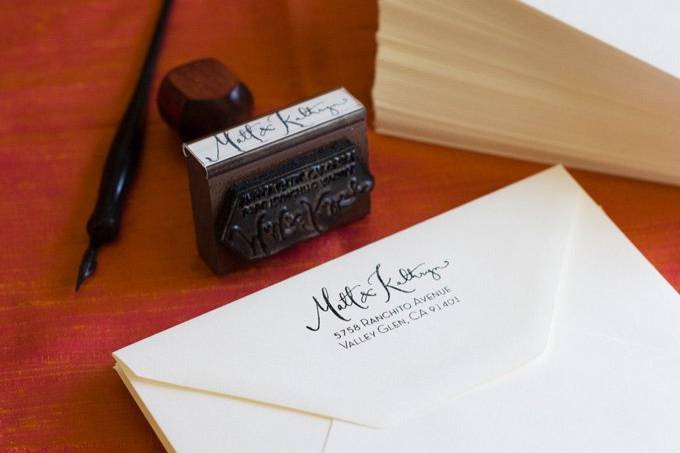 Matt & Kathryn
Matt & Kathryn
5758 Ranchito Avenue
Valley Glen, CA 91401